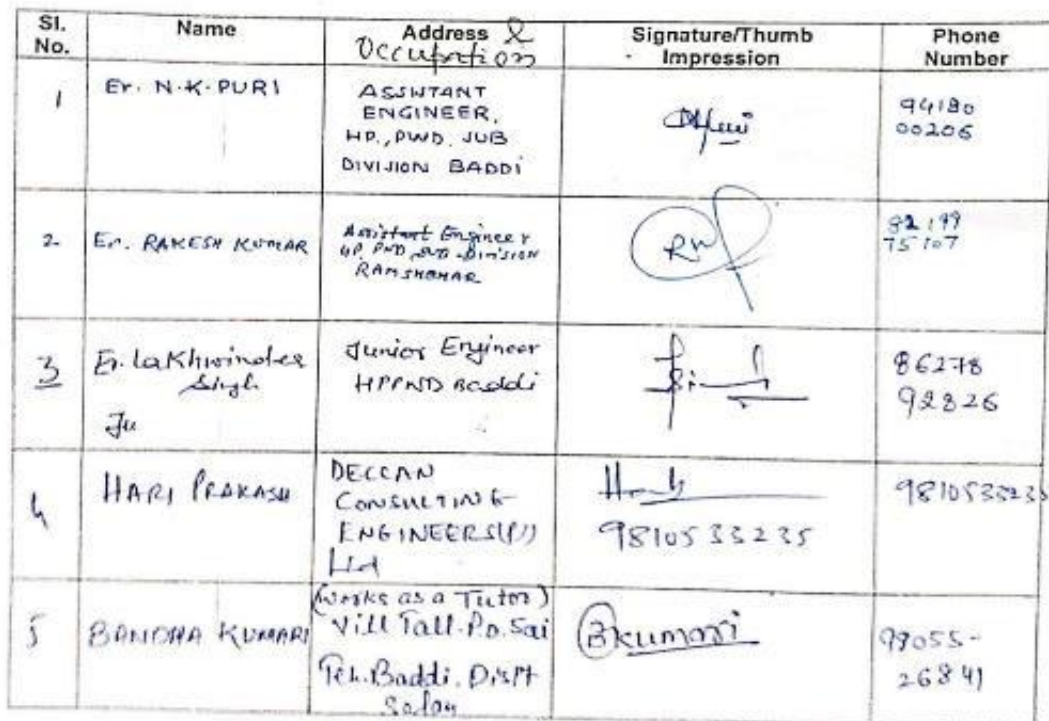 Sl. No. Name Address & Occupation Signature/Thumb Impression Phone Number
1 Er. N.K. PURI ASSISTANT ENGINEER, HP., PWD. SUB DIVISION BADDI 94180 00206
2 Er. RAKESH KUMAR Assistant Engineer HP. PWD, SUB-DIVISION RAMSHEHAR 82199 75107
3 Er. Lakhwinder Singh Ju Junior Engineer HPPWD Baddi 86278 92326
4 HARI PRAKASH DECCAN CONSULTING ENGINEERS(P) Ltd 9810533235 9810533235
5 BANDNA KUMARI (works as a Tutor) Vill Tall. P.O. Sai Teh. Baddi. Distt Solan Bkumari 98055-26841